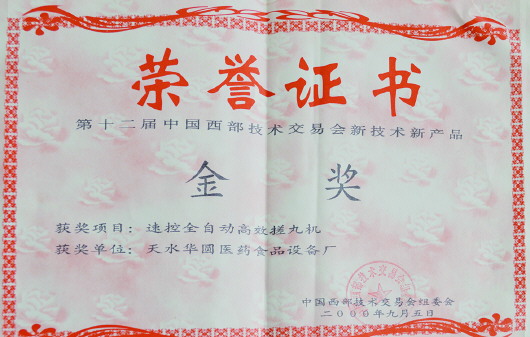 荣誉证书
第十二届中国西部技术交易会新技术新产品
金奖
获奖项目：速控全自动高效搓丸机
获奖单位：天水华圆医药食品设备厂
中国西部技术交易会组委会
二〇〇〇年九月五日